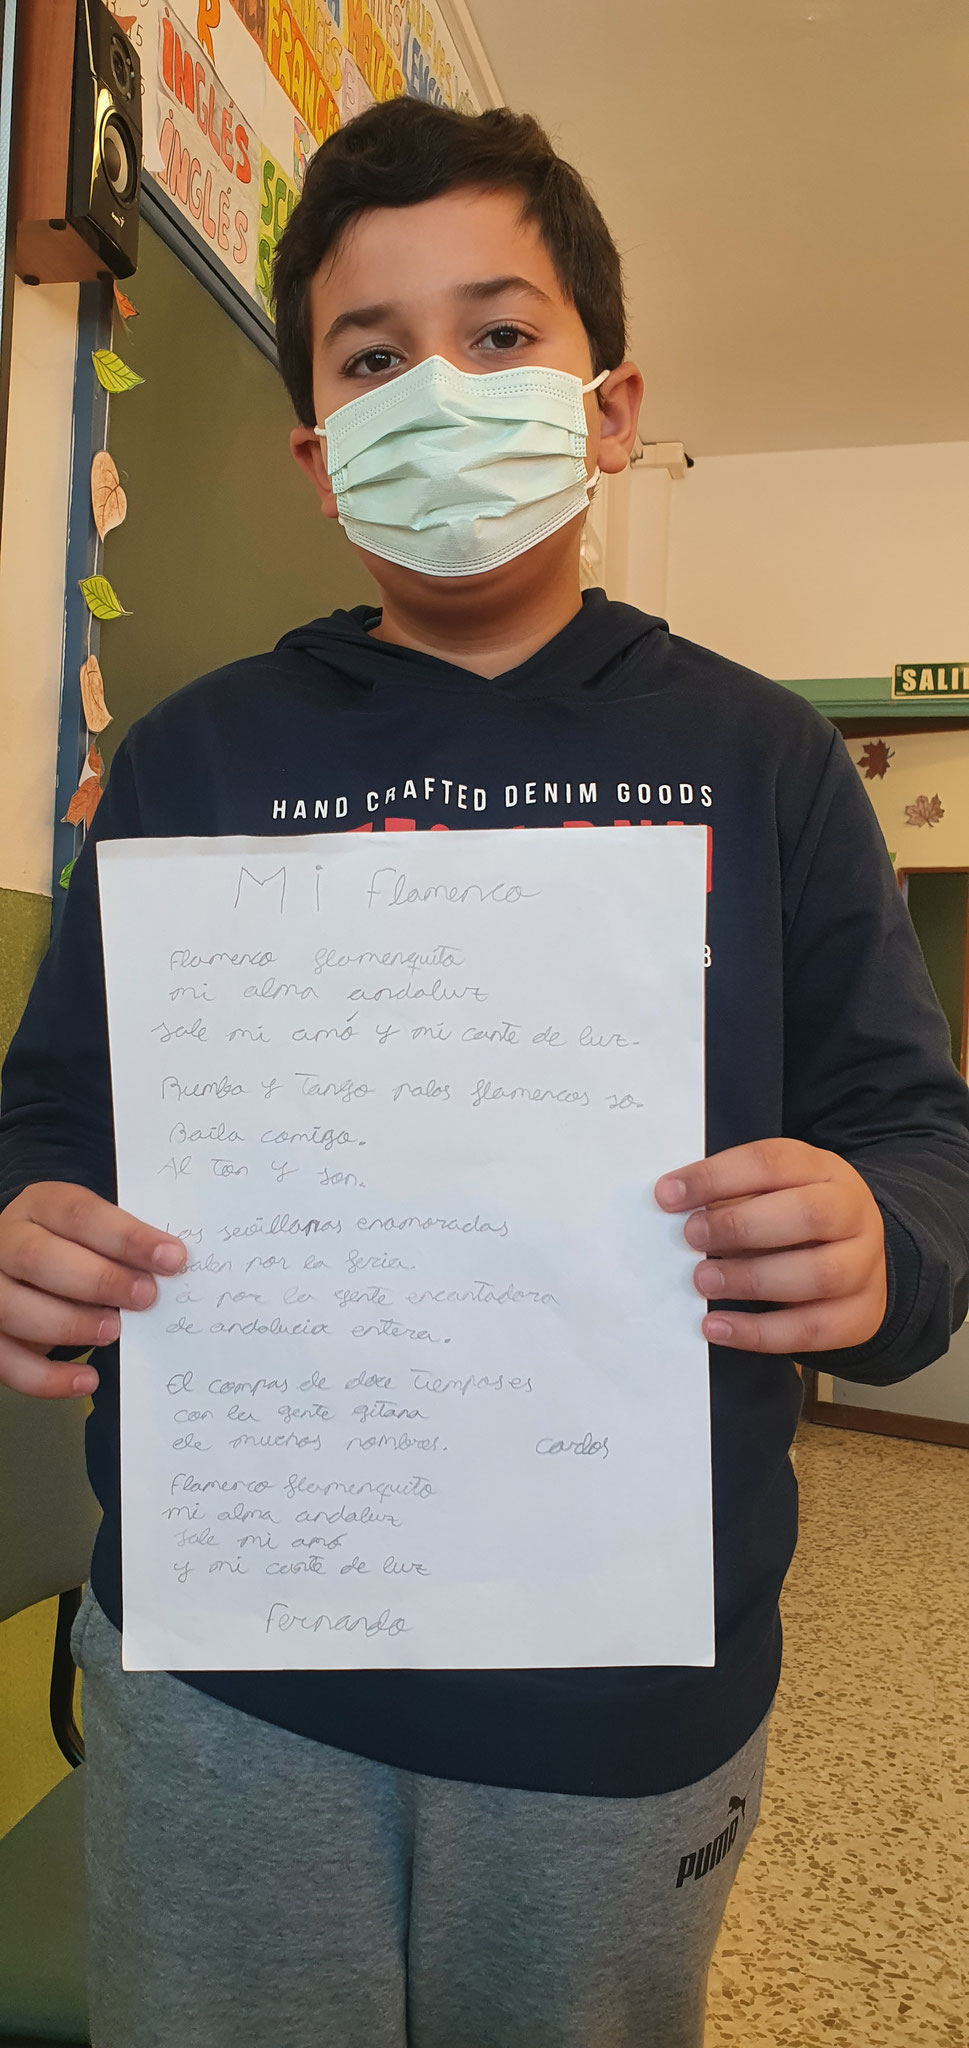 INGLÉS
INGLÉS
FRANCES
MATES
SALI
HAND CRAFTED DENIM GOODS
Mi Flamenco
Flamenco flamenquito
mi alma andaluz
sale mi amó y mi cante de luz.
Rumba y tango palos flamencos so.
Baila comigo.
Al ton y son.
Las sevillanas enamoradas
salen por la feria.
a por la gente encantadora
de andalucia entera.
El compas de doce tiempos es
con la gente gitana
de muchos nombres.
Cardos
Flamenco flamenquito
mi alma andaluz
sale mi amó
y mi cante de luz
Fernando
PUMA